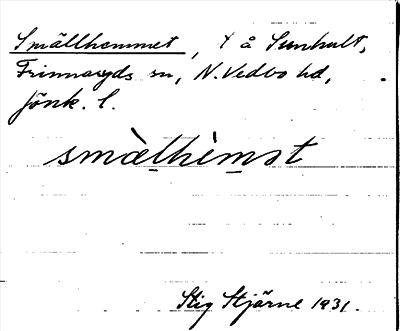 Smällhemmet, t å Sunhult,
Frinnaryds sn, N. Vedbo hd,
Jönk. l.
smæ̀lhèmət
Stig Stjärne 1931.